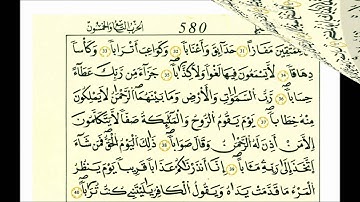 580 الحزب التاسع والخمسون
لِلْمُتَّقِينَ مَفَازًا 31 حَدَآئِقَ وَأَعْنَابًا 32 وَكَوَاعِبَ أَتْرَابًا 33 وَكَأْسًا
دِهَاقًا 34 لَّا يَسْمَعُونَ فِيهَا لَغْوًا وَلَا كِذَّابًا 35 جَزَآءً مِّن رَّبِّكَ عَطَآءً
حِسَابًا 36 رَّبِّ السَّمَٰوَٰتِ وَالْأَرْضِ وَمَا بَيْنَهُمَا الرَّحْمَٰنِ لَا يَمْلِكُونَ
مِنْهُ خِطَابًا 37 يَوْمَ يَقُومُ الرُّوحُ وَالْمَلَٰٓئِكَةُ صَفًّا لَّا يَتَكَلَّمُونَ
إِلَّا مَنْ أَذِنَ لَهُ الرَّحْمَٰنُ وَقَالَ صَوَابًا 38 ذَٰلِكَ الْيَوْمُ الْحَقُّ فَمَن شَآءَ
اتَّخَذَ إِلَىٰ رَبِّهِ مَـَٔابًا 39 إِنَّآ أَنذَرْنَٰكُمْ عَذَابًا قَرِيبًا يَوْمَ يَنظُرُ
الْمَرْءُ مَا قَدَّمَتْ يَدَاهُ وَيَقُولُ الْكَافِرُ يَٰلَيْتَنِي كُنتُ تُرَٰبًا 40